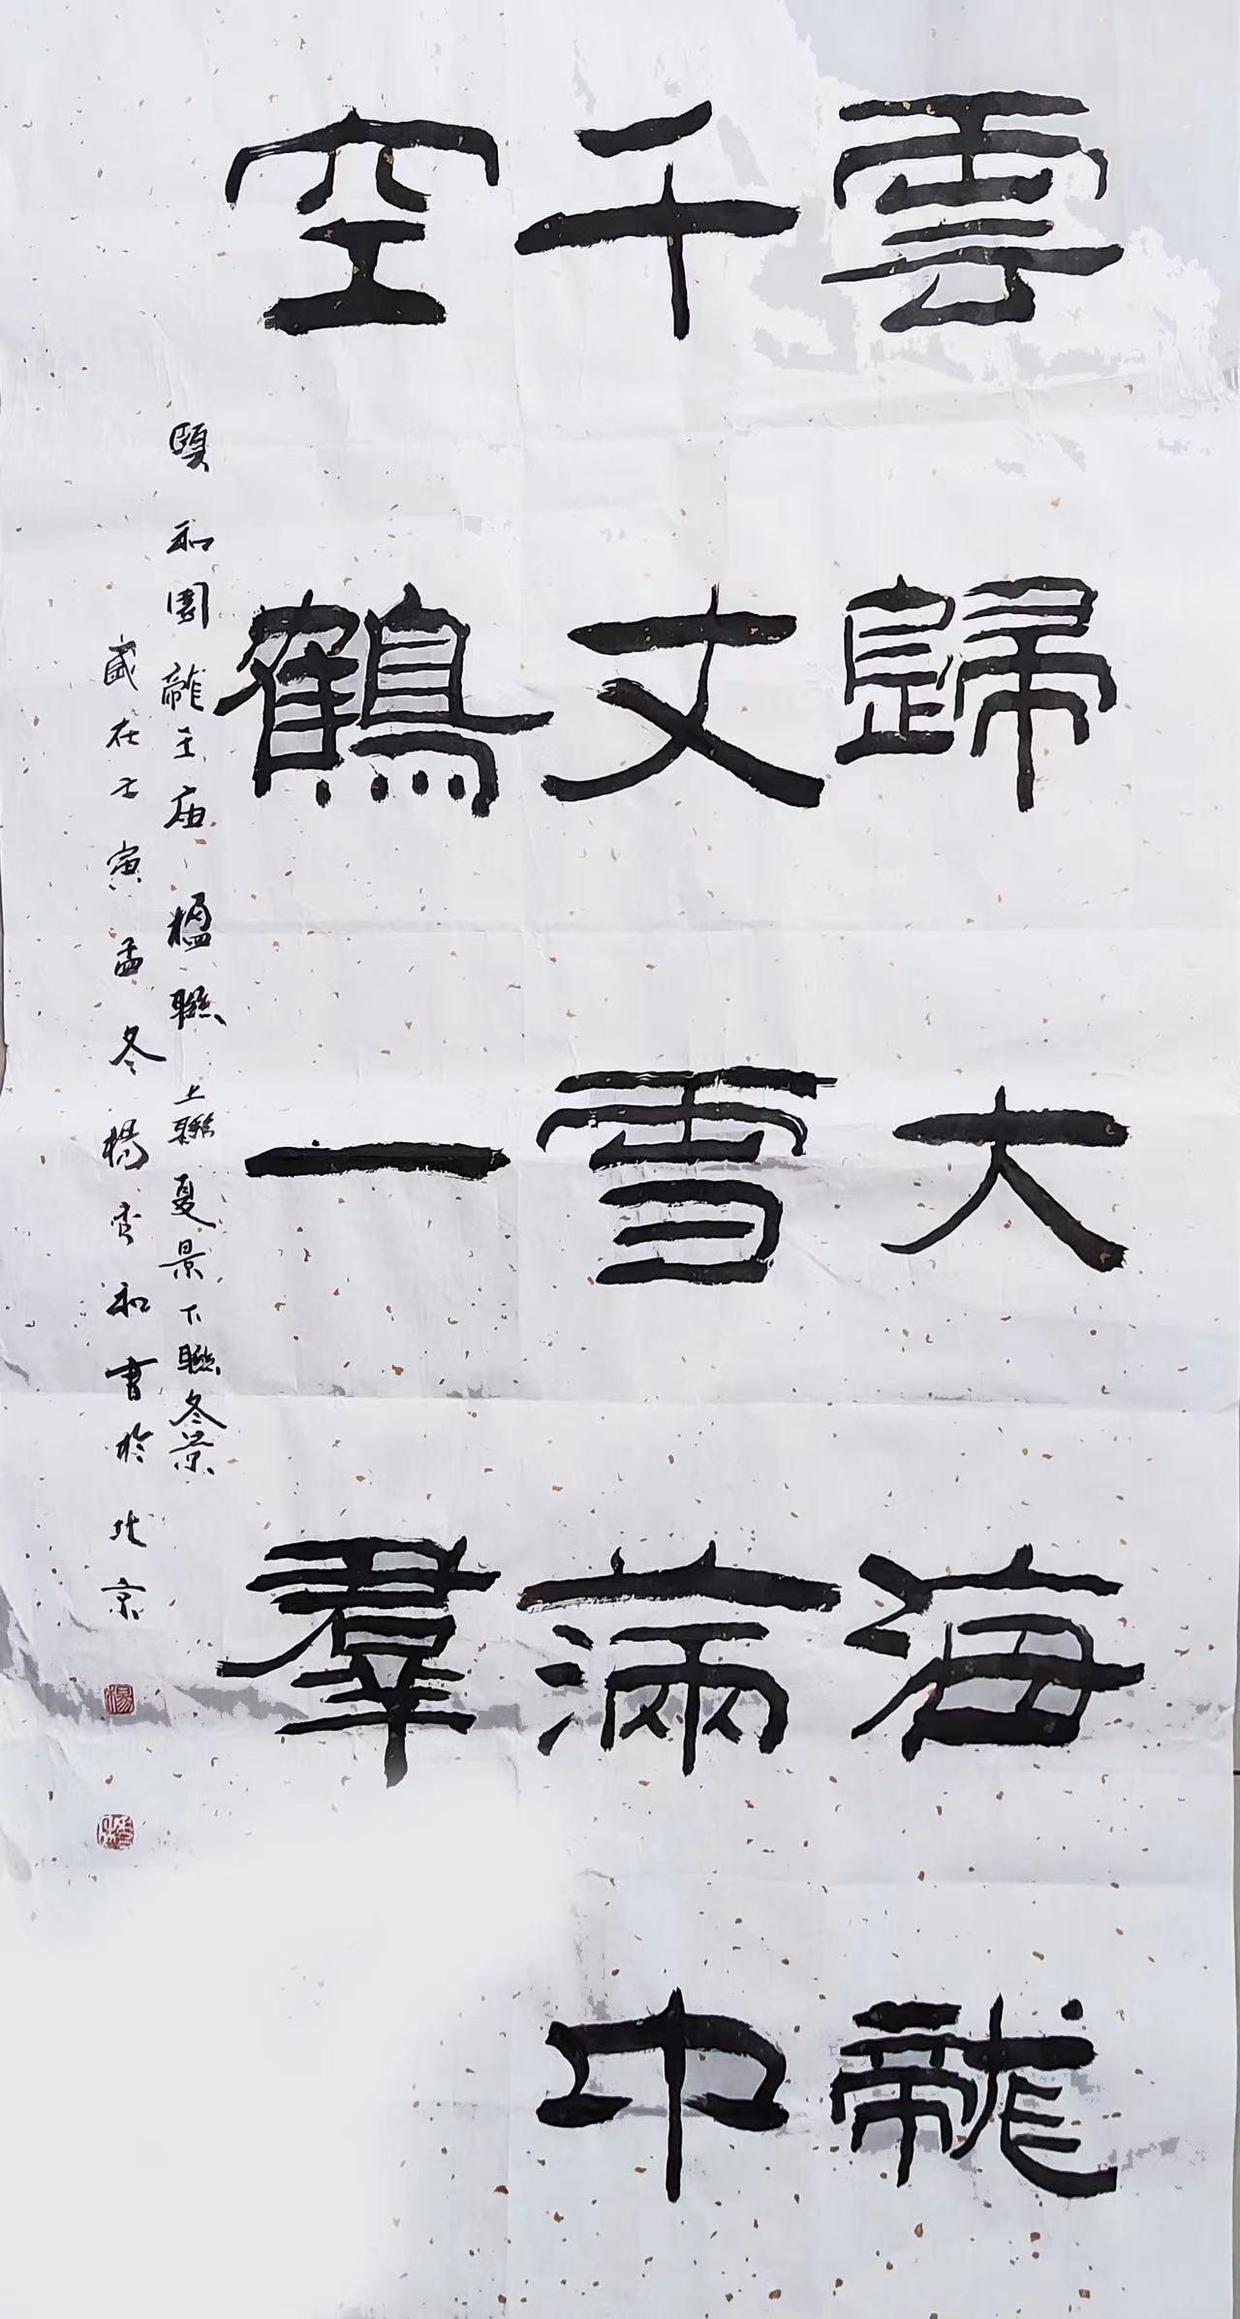 雲歸大海龍
千丈雪滿中
空鶴一羣
頤和園龍王庙楹聯上聯夏景下聯冬景
歲在壬寅孟冬楊秀和書於北京
楊